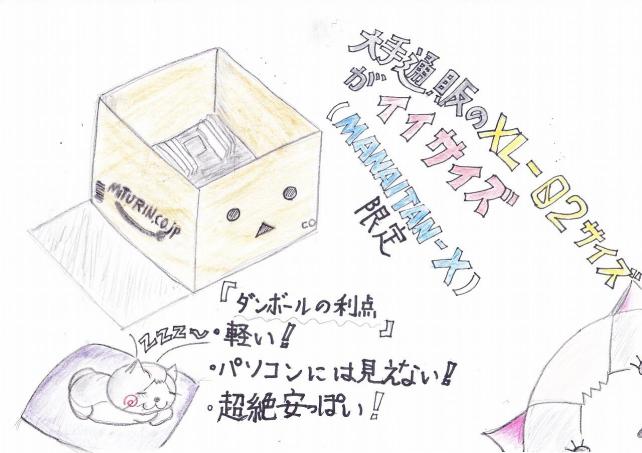 大手通販のXL-02サイズ
がイイサイズ
(MANAITAN-X)
限定
MiTURIN.co.jp
『ダンボールの利点』
zzz〜
・軽い!!
・パソコンには見えない!!
・超絶安っぽい!